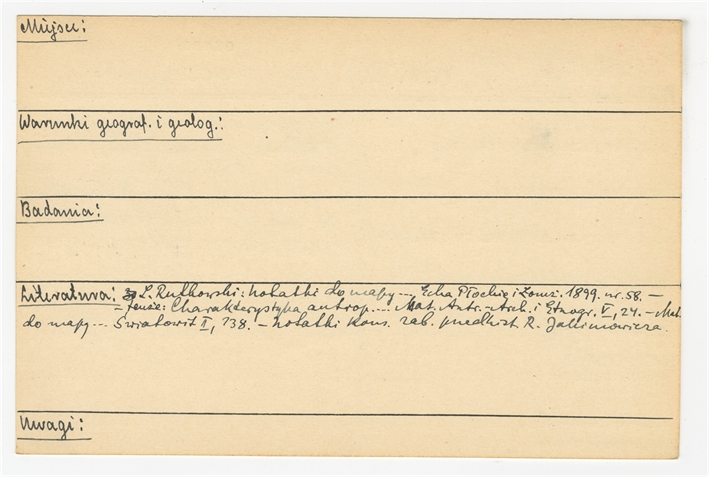 Miejsce:
Warunki geograf. i geolog.:
Badania:
Literatura: L. Rutkowski: Notatki do mapy... Echa Płockie i Łomż. 1899. nr. 58. –
– Tenże: Charakterystyka antrop.... Mat. Antr.-Arch. i Etnogr. V, 24. – Mat.
do mapy... Światowit II, 138. – Notatki kons. zab. przedhist. R. Jakimowicza.
Uwagi: